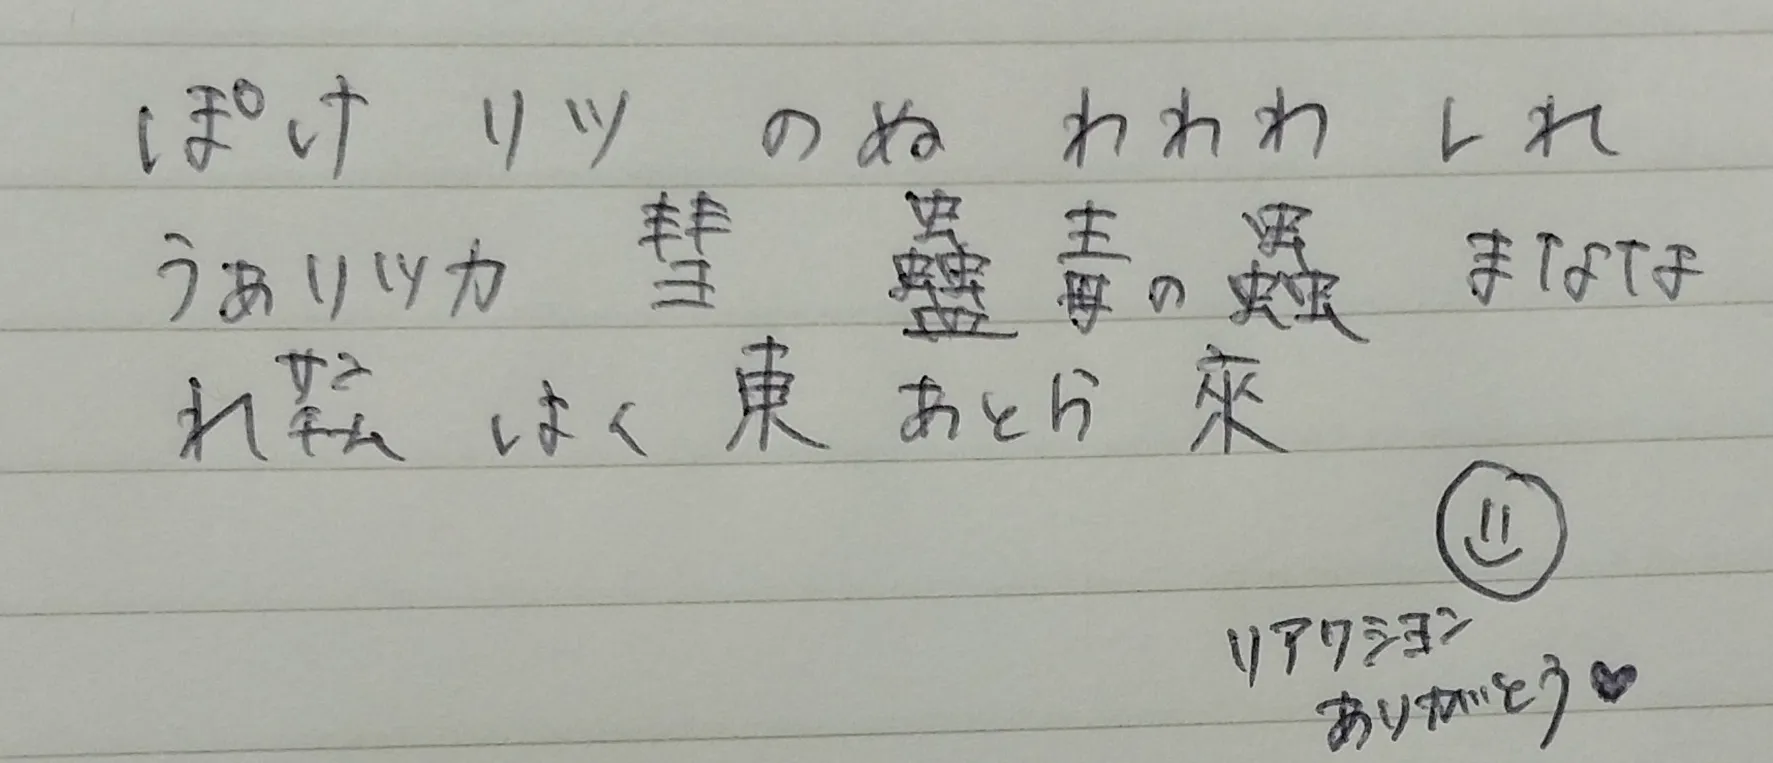 ぽけ リツ のぬ わわわ しれ
うぁリツカ 彗 蠱 毒の蟲 まなな
れ はく 東 あとら 來
リアクション
ありがとう♥